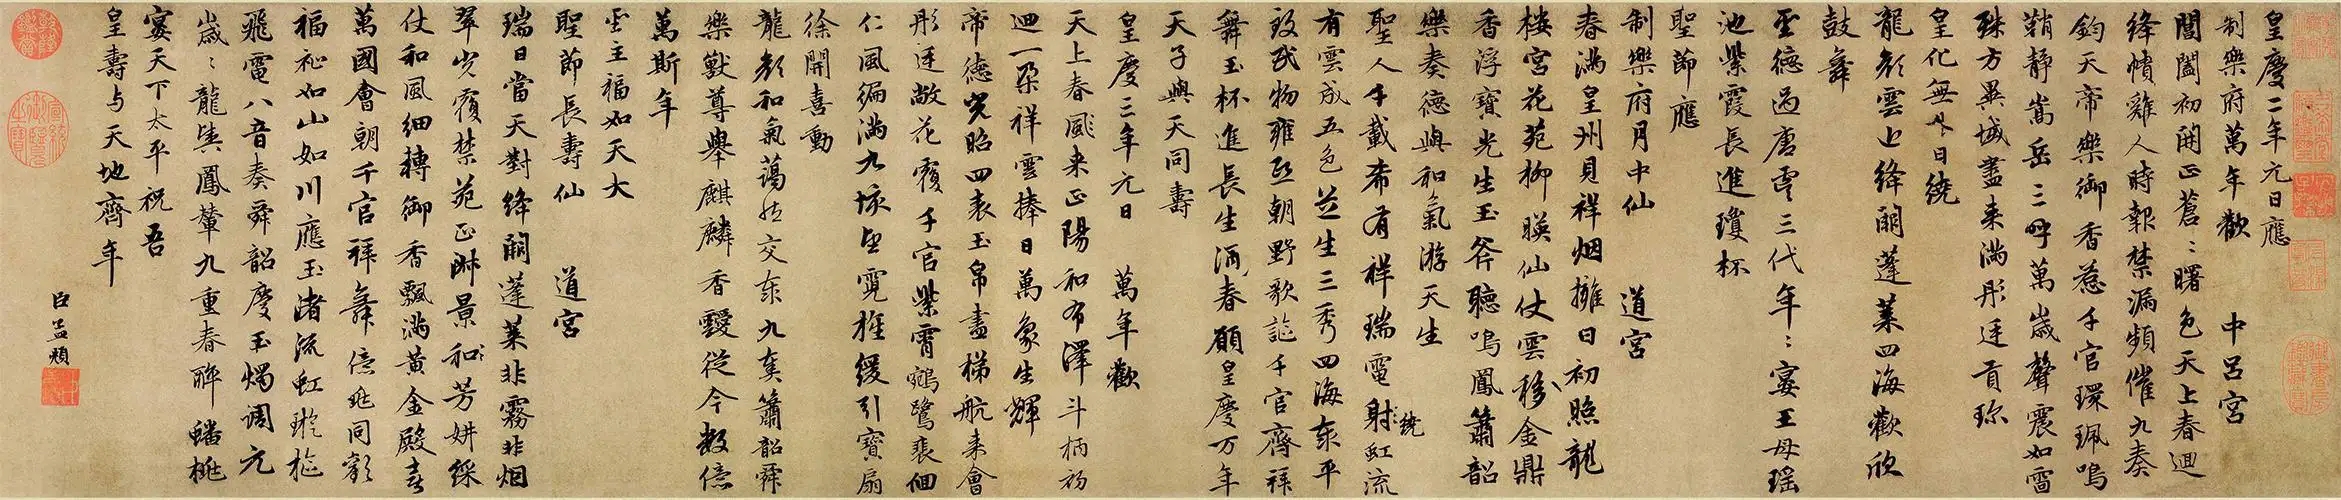 皇慶二年元日應
制樂府萬年歡　中呂宮
閶闔初開正蒼〻曙色天上春迴
絳幘雞人時報禁漏頻催九奏
鈞天帝樂御香惹千官環珮鳴
鞘靜嵩岳三呼萬歲聲震如雷
殊方異域盡来滿彤廷貢珎
皇化無外日繞
龍顏雲上絳闕蓬萊四海歡欣
鼓舞
聖德過唐虞三代年〻宴王母瑶
池紫霞長進瓊杯
聖節應
制樂府月中仙　道宮
春滿皇州見祥烟擁日初照龍
楼宮花苑柳暎仙仗雲移金鼎
香浮寶光生玉斧聽鳴鳳簫韶
樂奏德與和氣游天生
聖人千載希有祥瑞電射虹流
繞
有雲成五色芝生三秀四海泰平
致民物雍熙朝野歌謳千官齊拜
舞玉杯進長生酒春願皇慶万年
天子與天同壽
皇慶三年元日　萬年歡
天上春風来正陽和布澤斗柄初
迴一朶祥雲捧日萬象生輝
帝德光昭四表玉帛盡梯航来會
彤廷敞花覆千官紫霄鵷鷺裴徊
仁風徧滿九垓望霓旌緩引寶扇
徐開喜動
龍顏和氣藹然交泰九奏簫韶舜
樂獸尊舉麒麟香靉從今數億
萬斯年
聖主福如天大
聖節長壽仙　道宮
瑞日當天對絳闕蓬萊非霧非烟
翠光覆禁苑正淑景和芳妍綵
仗和風細轉御香飄滿黃金殿喜
萬國會朝千官拜舞億兆同歡
福祉如山如川應玉渚流虹璇樞
飛電八音奏舜韶慶玉燭调元
歲〻龍輿鳳輦九重春醉蟠桃
宴天下太平祝吾
皇壽与天地齊年
臣孟頫